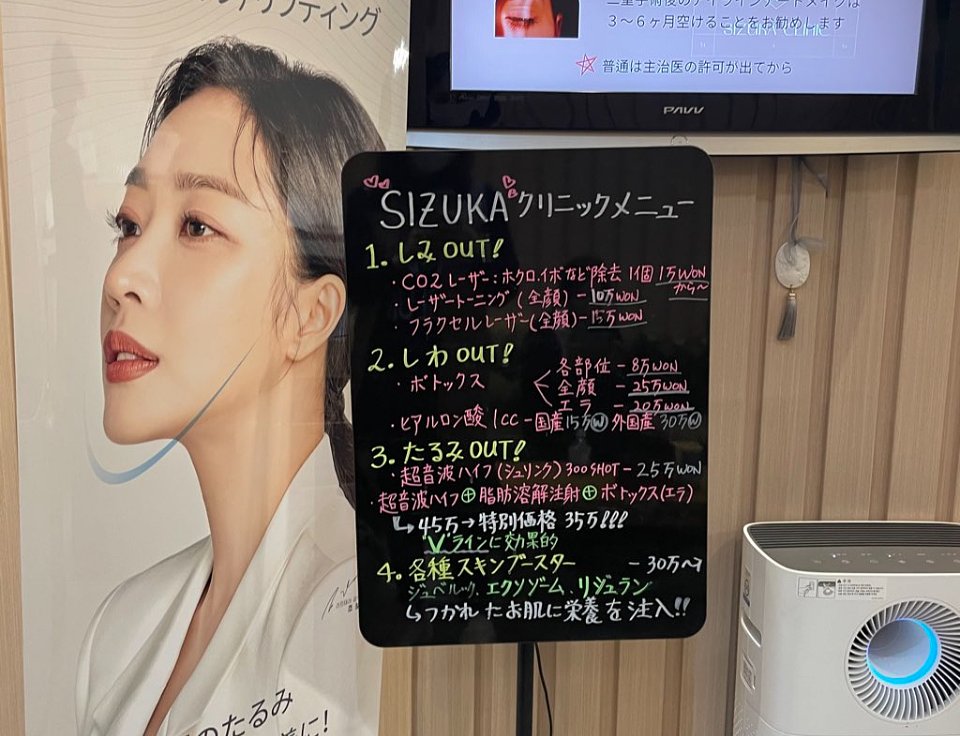 フティング
二重手術後のアイラインアートメイクは
3～6ヶ月空けることをお勧めします
SIZUKA CLINIC
普通は主治医の許可が出てから
PAVV
SIZUKAクリニックメニュー
1. しみOUT!
・CO2レーザー：ホクロ、イボなど除去 1個 1万WON から～
・レーザートーニング(全顔) - 10万WON
・フラクセルレーザー(全顔) - 15万WON
2. しわOUT!
・ボトックス
各部位 - 8万WON
全顔 - 25万WON
エラ - 20万WON
・ヒアルロン酸 1cc - 国産 15万Ⓦ 外国産 30万Ⓦ
3. たるみOUT!
・超音波ハイフ(シュリンク) 300SHOT - 25万WON
・超音波ハイフ⊕脂肪溶解注射⊕ボトックス(エラ)
↳45万→特別価格 35万!!!
Vラインに効果的
4. 各種スキンブースター - 30万～
ジュベルック、エクソゾーム、リジュラン
↳つかれたお肌に栄養を注入!!
のたるみ
に!